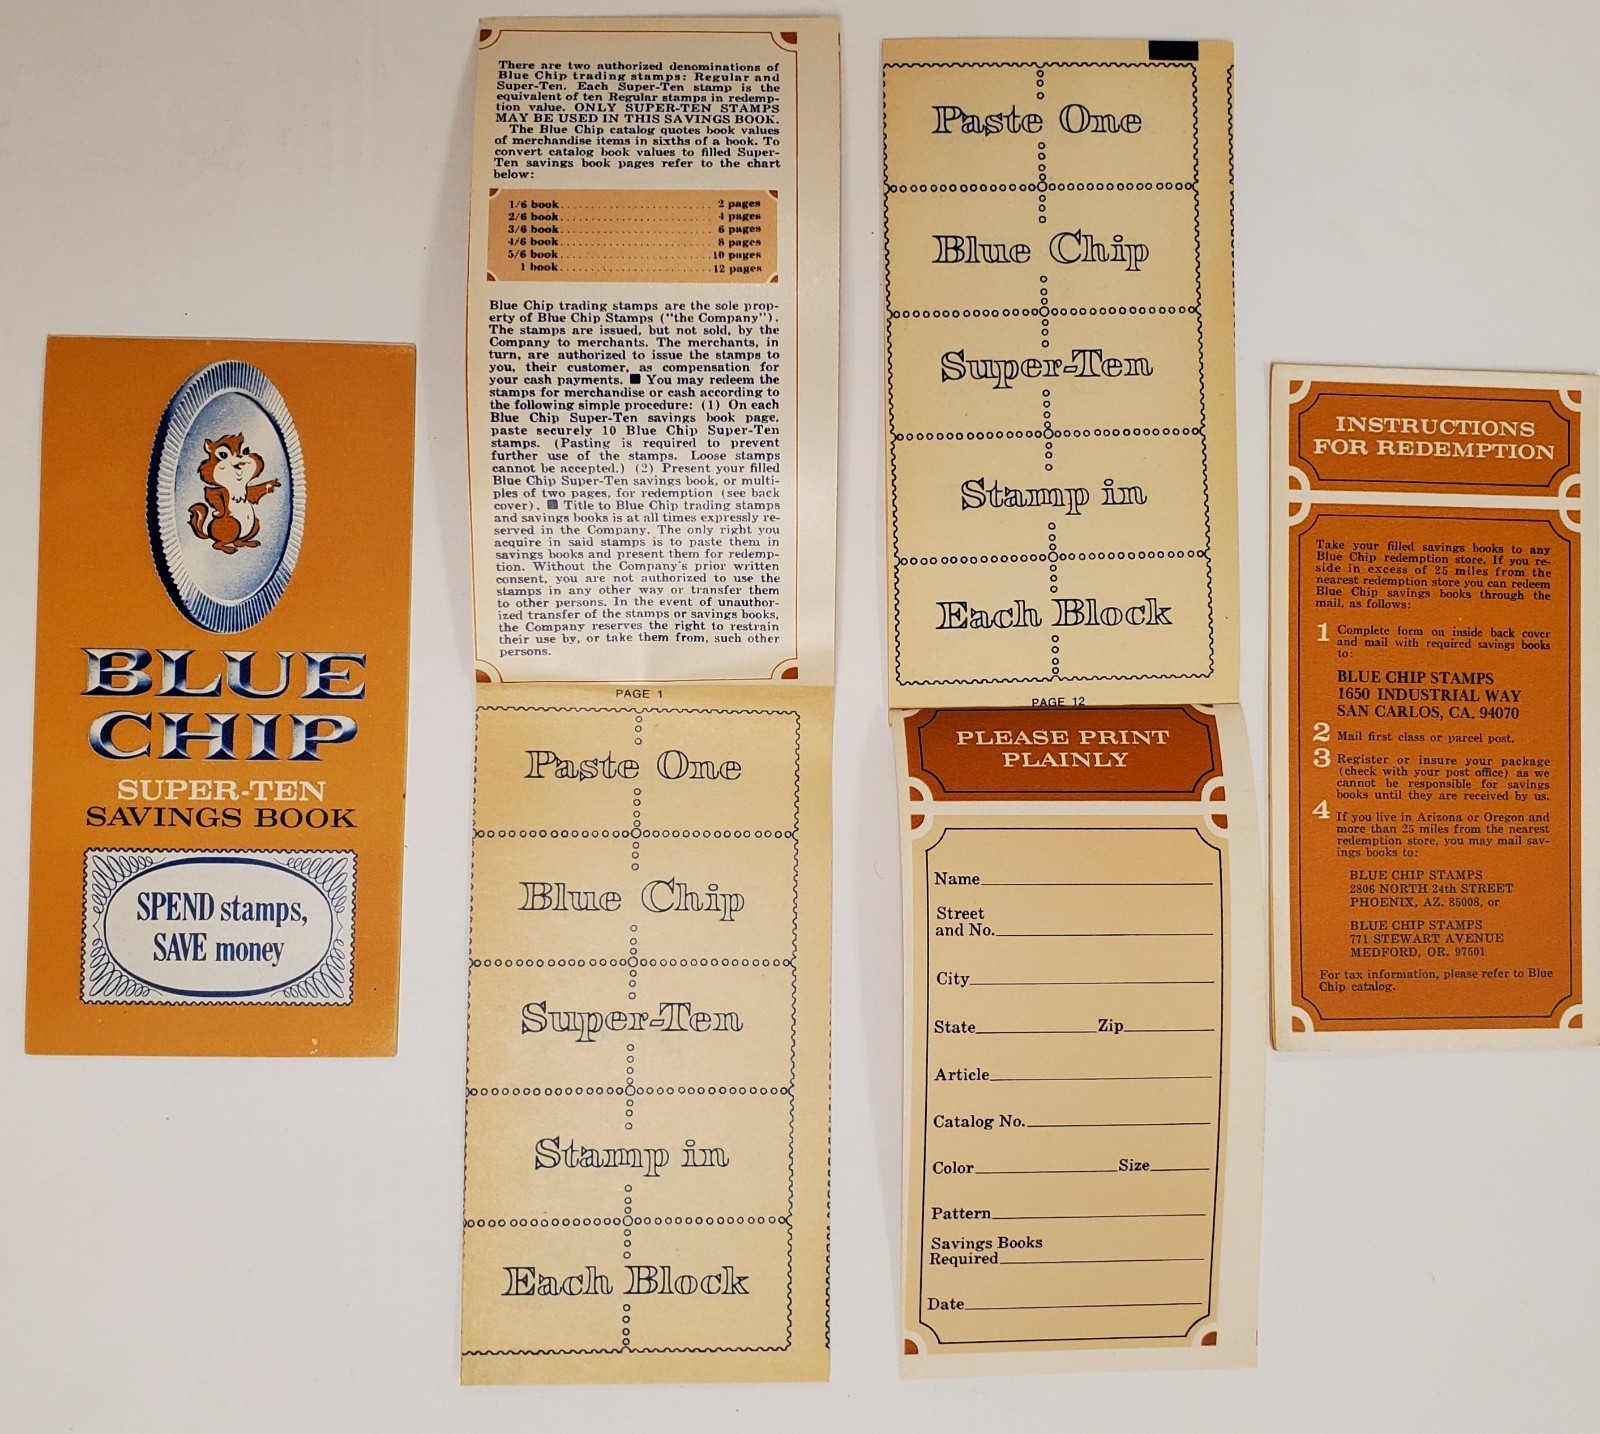 BLUE
CHIP
SUPER-TEN
SAVINGS BOOK
SPEND stamps,
SAVE money
There are two authorized denominations of
Blue Chip trading stamps: Regular and
Super-Ten. Each Super-Ten stamp is the
equivalent of ten Regular stamps in redemp-
tion value. ONLY SUPER-TEN STAMPS
MAY BE USED IN THIS SAVINGS BOOK.
The Blue Chip catalog quotes book values
of merchandise items in sixths of a book. To
convert catalog book values to filled Super-
Ten savings book pages refer to the chart
below:
1/6 book........................ 2 pages
2/6 book........................ 4 pages
3/6 book........................ 6 pages
4/6 book........................ 8 pages
5/6 book........................ 10 pages
1 book........................ 12 pages
Blue Chip trading stamps are the sole prop-
erty of Blue Chip Stamps ("the Company").
The stamps are issued, but not sold, by the
Company to merchants. The merchants, in
turn, are authorized to issue the stamps to
you, their customer, as compensation for
your cash payments. ■ You may redeem the
stamps for merchandise or cash according to
the following simple procedure: (1) On each
Blue Chip Super-Ten savings book page,
paste securely 10 Blue Chip Super-Ten
stamps. (Pasting is required to prevent
further use of the stamps. Loose stamps
cannot be accepted.) (2) Present your filled
Blue Chip Super-Ten savings book, or multi-
ples of two pages, for redemption (see back
cover). ■ Title to Blue Chip trading stamps
and savings books is at all times expressly re-
served in the Company. The only right you
acquire in said stamps is to paste them in
savings books and present them for redemp-
tion. Without the Company's prior written
consent, you are not authorized to use the
stamps in any other way or transfer them
to other persons. In the event of unauthor-
ized transfer of the stamps or savings books,
the Company reserves the right to restrain
their use by, or take them from, such other
persons.
PAGE 1
Paste One
Blue Chip
Super-Ten
Stamp in
Each Block
Paste One
Blue Chip
Super-Ten
Stamp in
Each Block
PAGE 12
PLEASE PRINT
PLAINLY
Name
Street
and No.
City
State Zip
Article
Catalog No.
Color Size
Pattern
Savings Books
Required
Date
INSTRUCTIONS
FOR REDEMPTION
Take your filled savings books to any
Blue Chip redemption store. If you re-
side in excess of 25 miles from the
nearest redemption store you can redeem
Blue Chip savings books through the
mail, as follows:
1 Complete form on inside back cover
and mail with required savings books
to:
BLUE CHIP STAMPS
1650 INDUSTRIAL WAY
SAN CARLOS, CA. 94070
2 Mail first class or parcel post.
3 Register or insure your package
(check with your post office) as we
cannot be responsible for savings
books until they are received by us.
4 If you live in Arizona or Oregon and
more than 25 miles from the nearest
redemption store, you may mail sav-
ings books to:
BLUE CHIP STAMPS
2806 NORTH 24th STREET
PHOENIX, AZ. 85008, or
BLUE CHIP STAMPS
771 STEWART AVENUE
MEDFORD, OR. 97501
For tax information, please refer to Blue
Chip catalog.